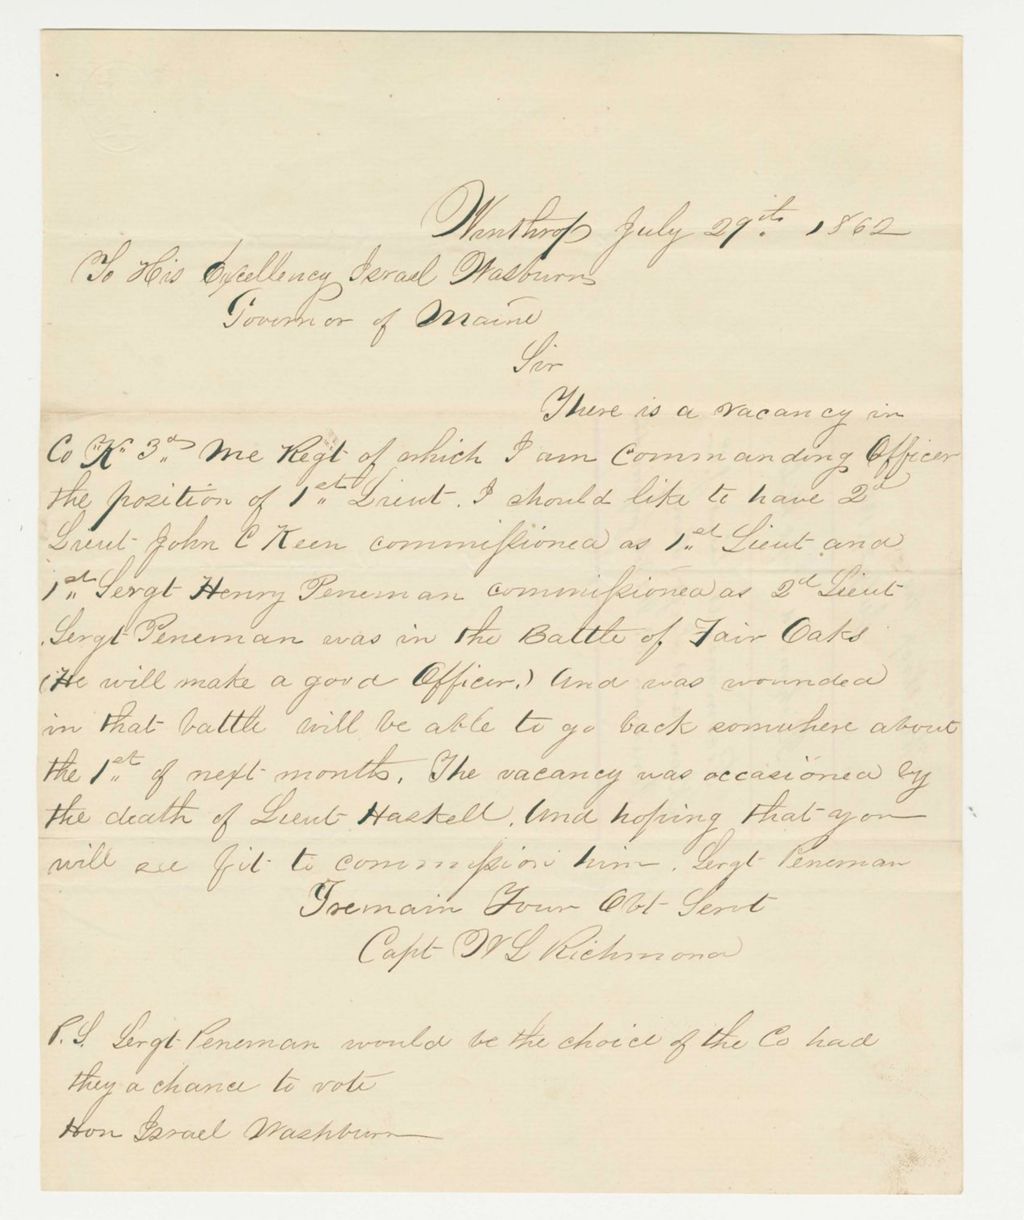 Winthrop July 29th 1862
To His Excellency Israel Wasburn
Governor of Maine
Sir
There is a vacancy in
Co "K" 3d Me Regt of which I am Commanding Officer
the position of 1st Lieut. I should like to have 2d
Lieut John C Keen commissioned as 1st Lieut and
1st Sergt Henry Peneman commissioned as 2d Lieut
Sergt Peneman was in the Battle of Fair Oaks
(He will make a good Officer.) And was wounded
in that battle will be able to go back somwhere about
the 1st of next month. The vacancy was occasioned by
the death of Lieut Haskell. And hoping that you
will see fit to commission him. Sergt Peneman
I remain Your Obt Servt
Capt W L Richmond
P.S. Sergt Peneman would be the choice of the Co had
they a chance to vote
Hon Israel Washburn